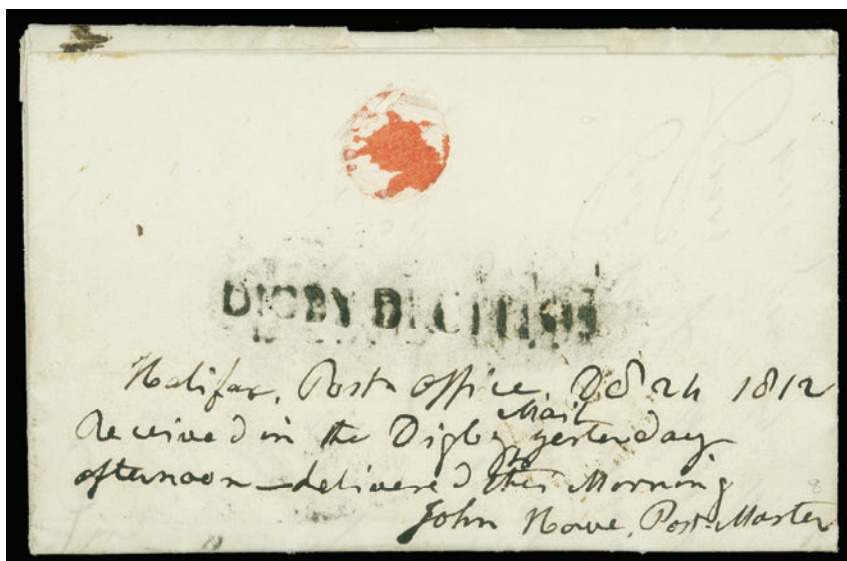 DIGBY
Halifax, Post Office, 24 1812
Received in the Digby Mail yesterday
afternoon – delivered this Morning
John Howe, Post-Master
8